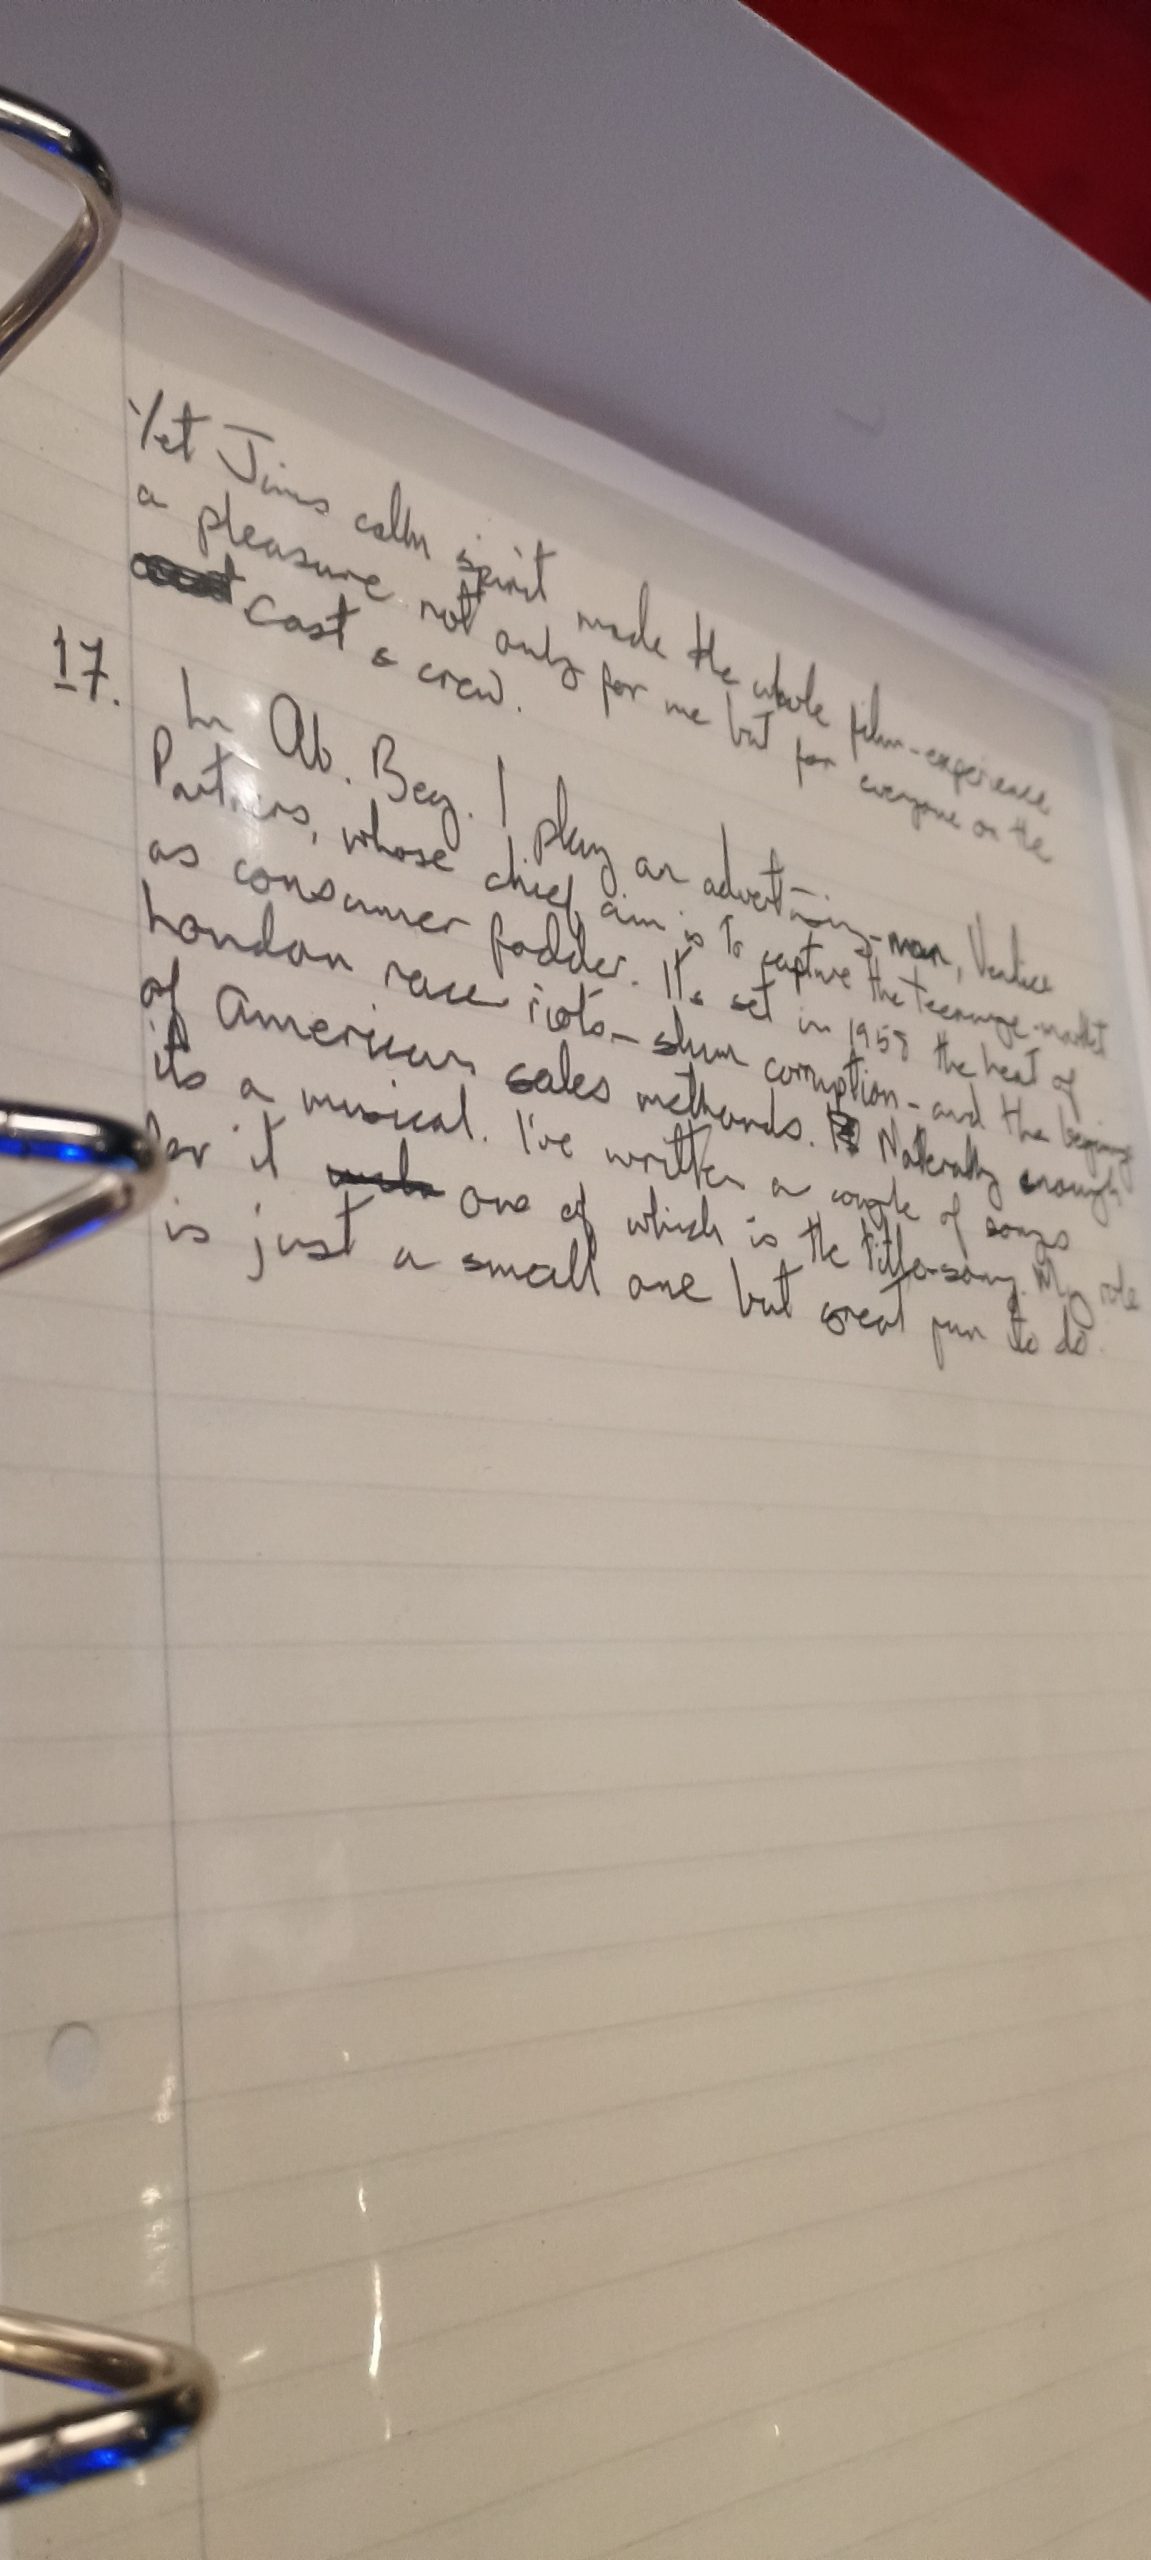 Yet Jims calm spirit made the whole film-experience
a pleasure not only for me but for everyone on the
cast & crew.
17. In Ab. Beg. I play an advertising-man, Vendice
Partners, whose chief aim is to capture the teenage-market
as consumer fodder. Its set in 1958 the heat of
London race riots - slum corruption - and the begining
of American sales methods. Naterally enough,
its a musical. I've written a couple of songs
for it one of which is the title-song. My role
is just a small one but great fun to do.